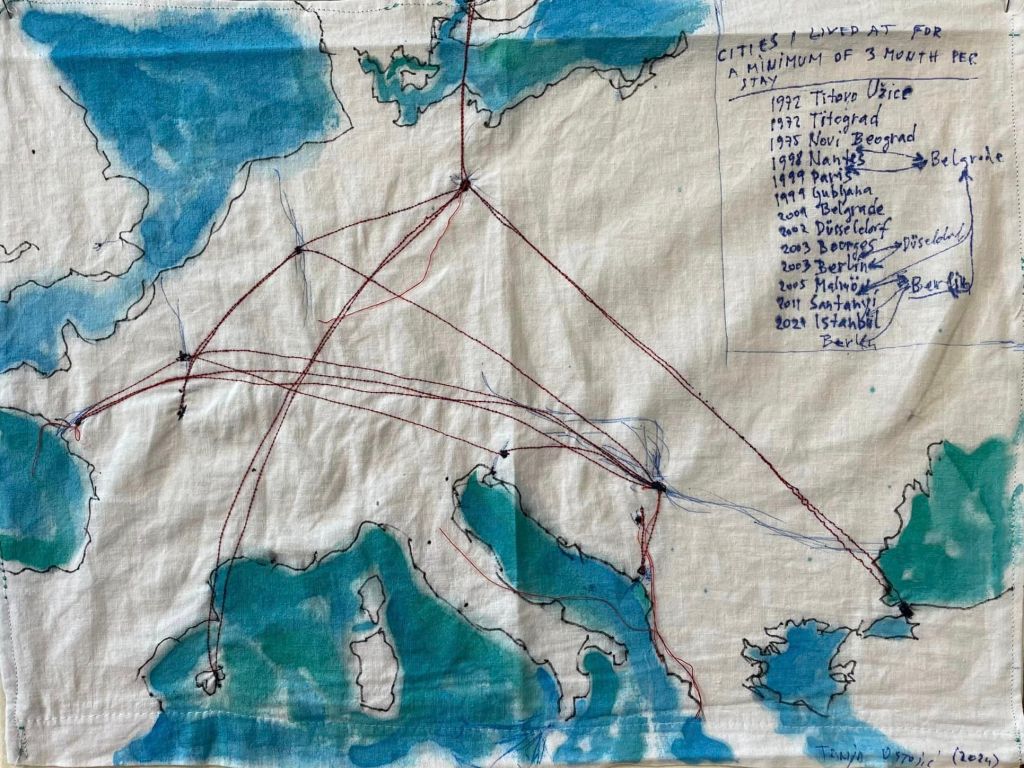 CITIES I LIVED AT FOR
A MINIMUM OF 3 MONTH PER
STAY
1972 Titovo Užice
1972 Titograd
1975 Novi Beograd
1998 Nantes Belgrade
1999 Paris
1999 Ljubljana
2001 Belgrade
2002 Düsseldorf
2003 Bourges Düseldorf
2003 Berlin
2005 Malmö Berlin
2011 Santanyi
2021 Istanbul
Berlin
Tanja Ostojić (2024)